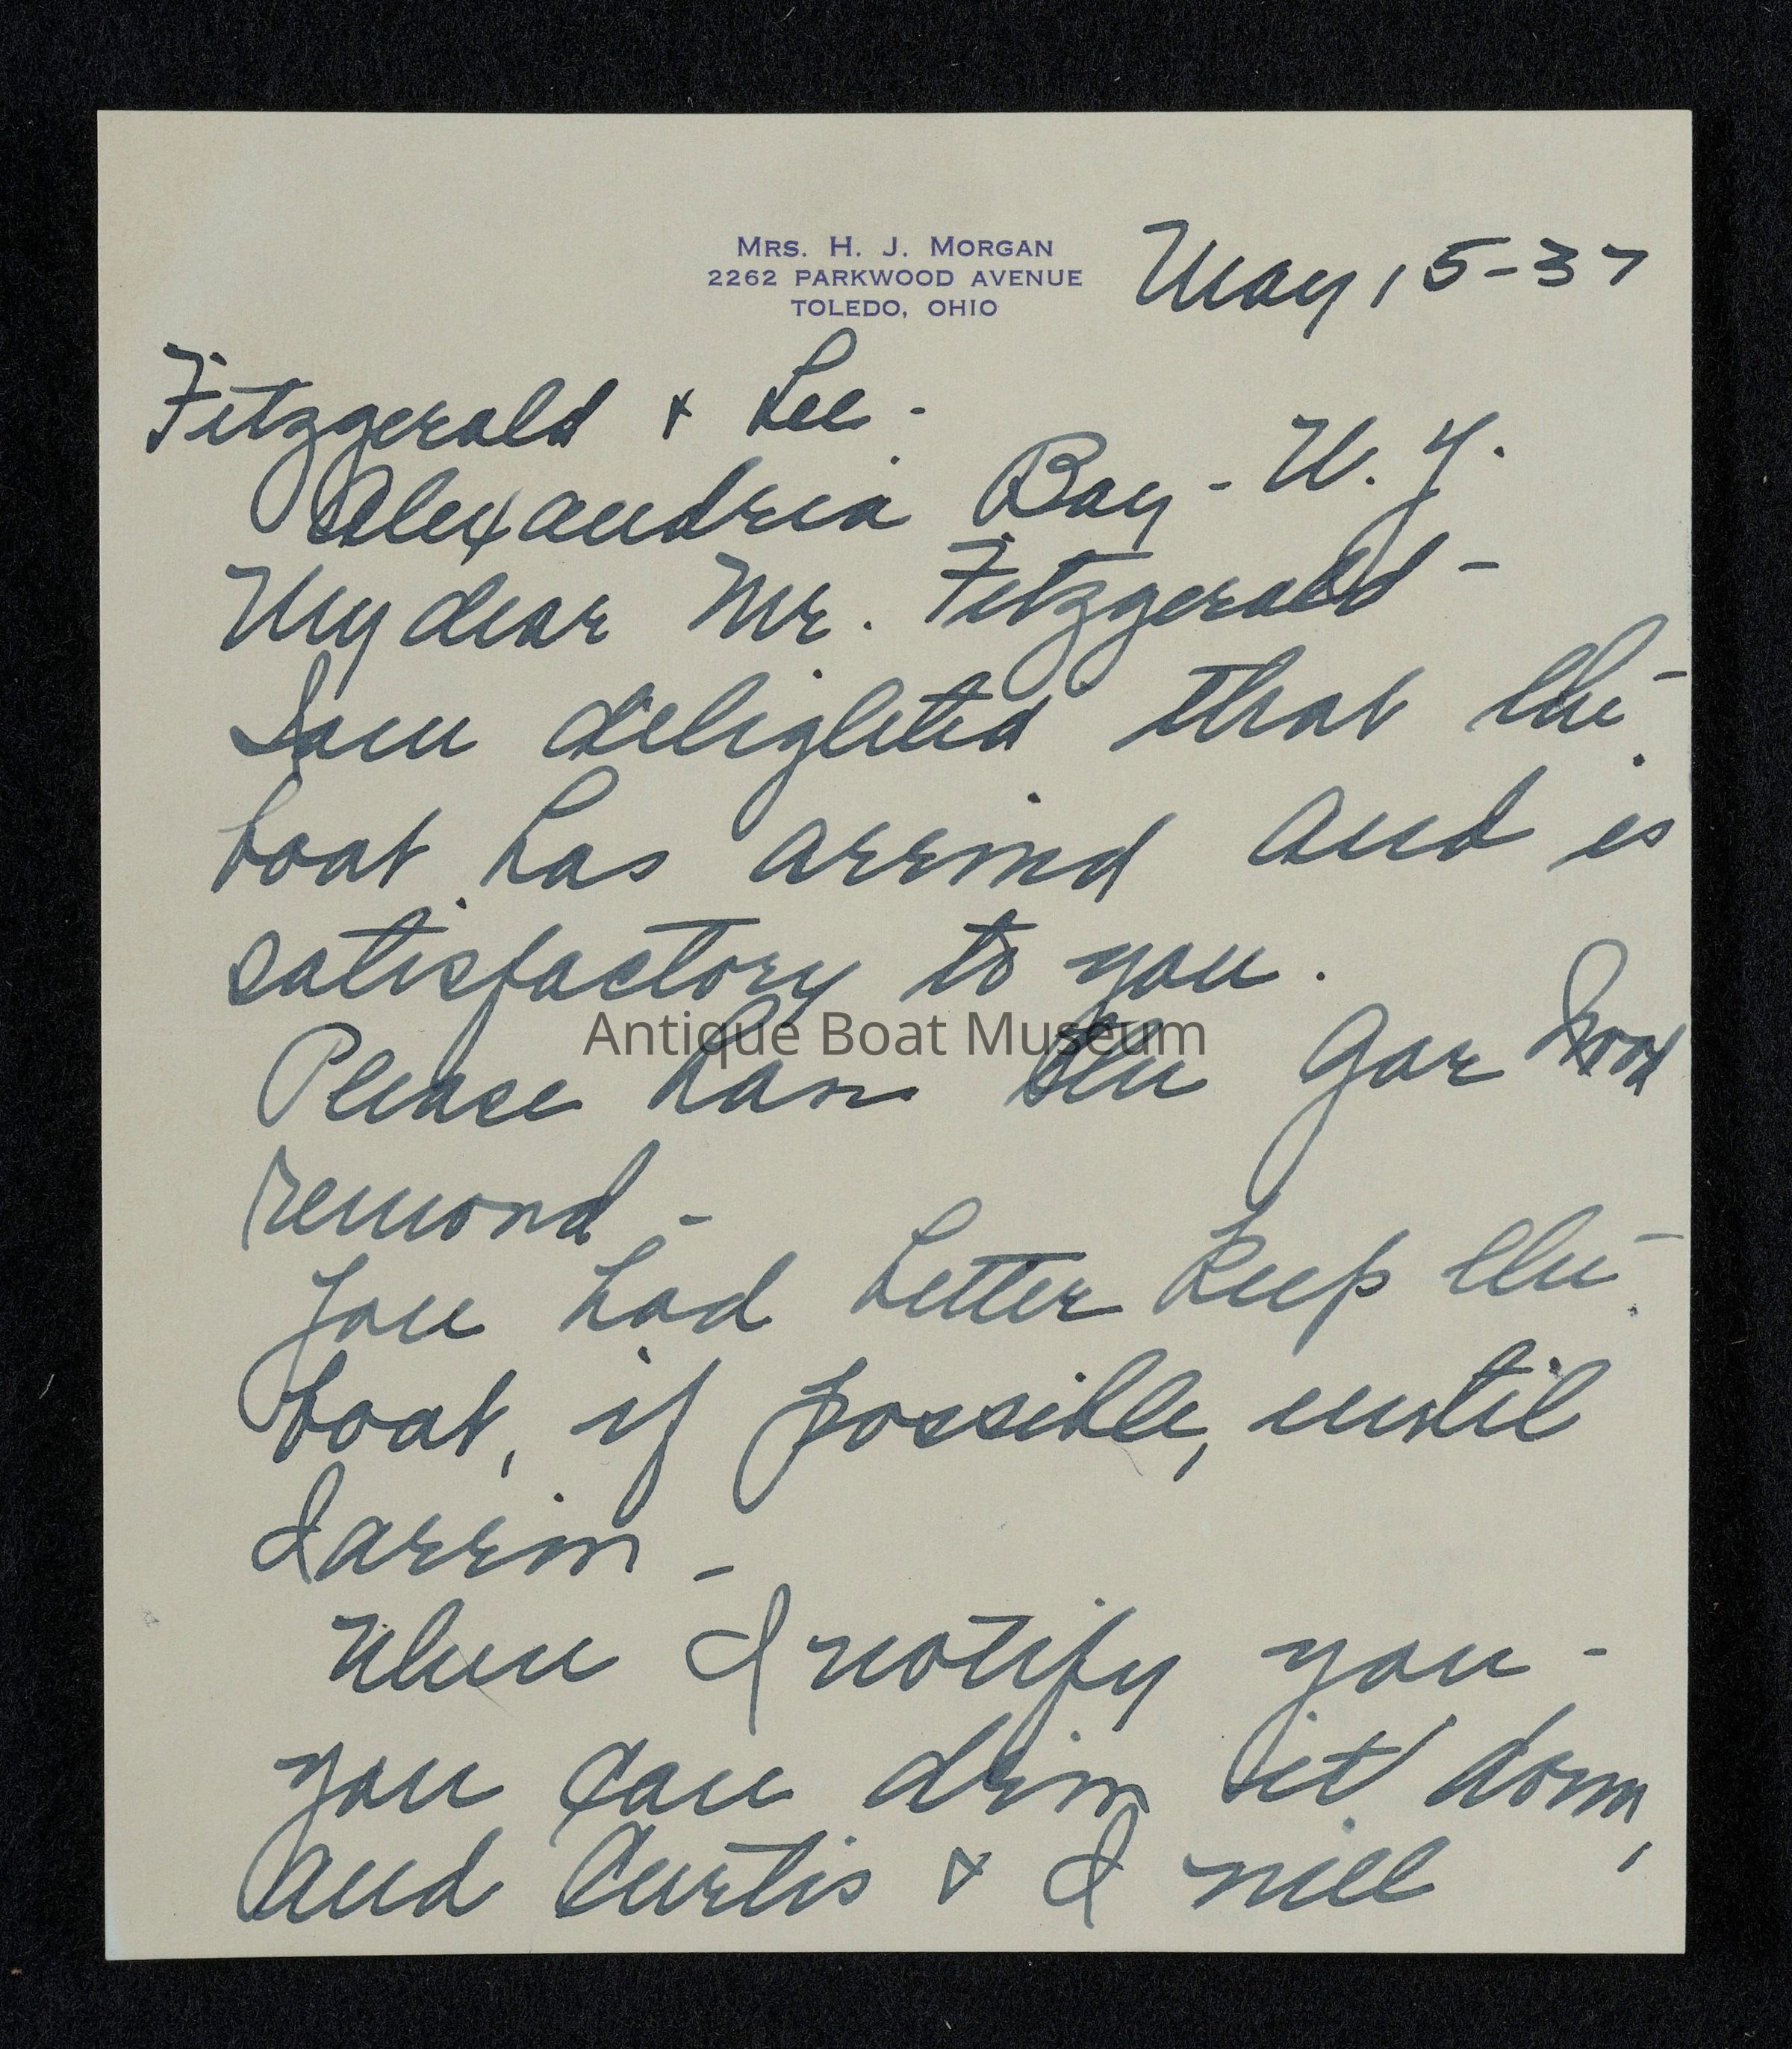 MRS. H. J. MORGAN
2262 PARKWOOD AVENUE
TOLEDO, OHIO
May 15-37
Fitzgerald & Lee -
Alexandria Bay - N. Y.
My dear Mr. Fitzgerald -
I am delighted that the
boat has arrived and is
satisfactory to you.
Please have the Gar Wood
removed -
You had better keep the
boat, if possible, until
I arrive -
When I notify you -
you can drive it down,
and Curtis & I will
Antique Boat Museum